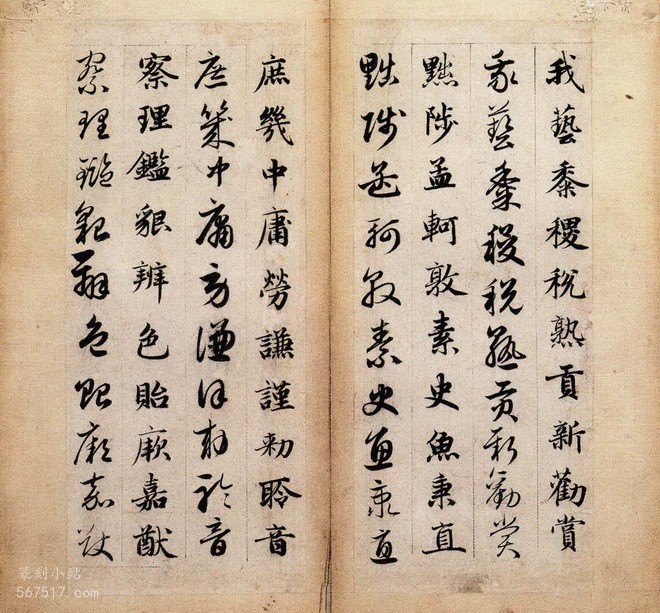 我藝黍稷稅熟貢新勸賞
我藝黍稷稅熟貢新勸賞
黜陟孟軻敦素史魚秉直
黜陟孟軻敦素史魚秉直
庶幾中庸勞謙謹勅聆音
庶幾中庸勞謙謹勅聆音
察理鑑貌辨色貽厥嘉猷
察理鑑貌辨色貽厥嘉猷
篆刻小站
567517.com